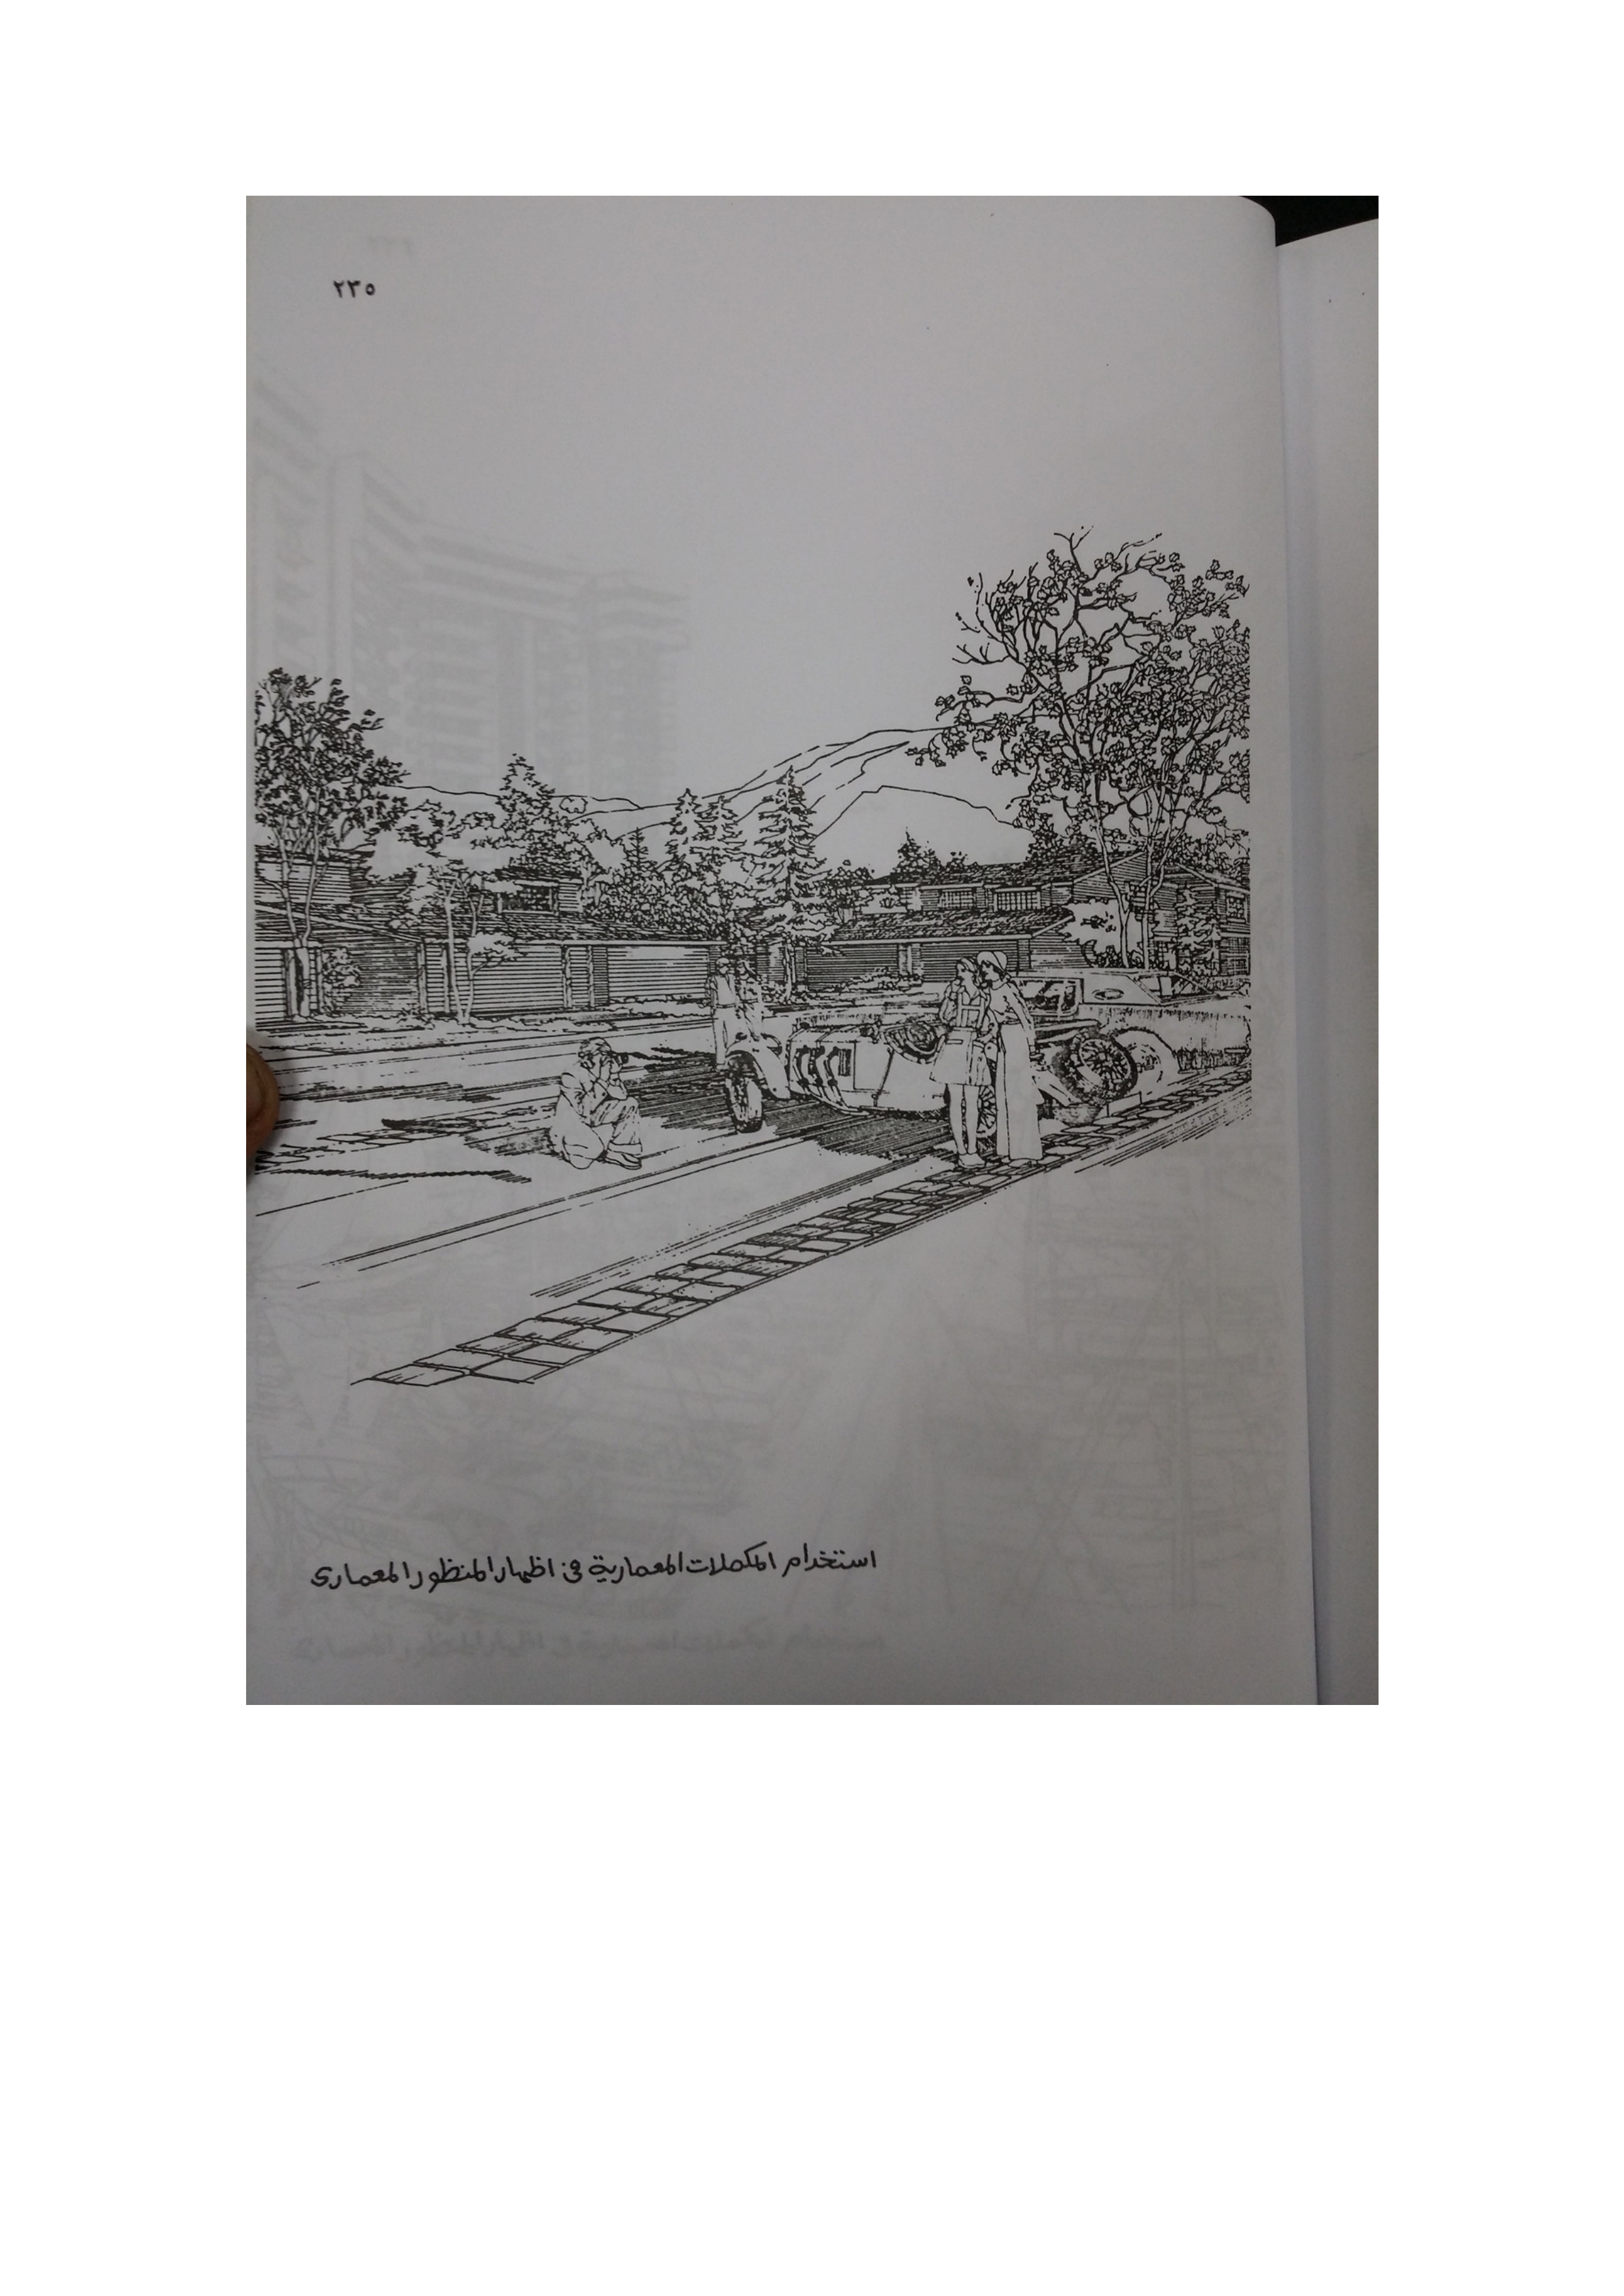 ٢٣٥
استخدام المكملات المعمارية فى اظهار المنظور المعمارى